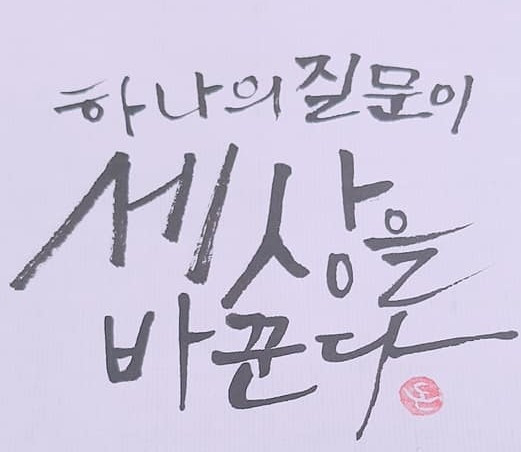 하나의 질문이
세상을
바꾼다